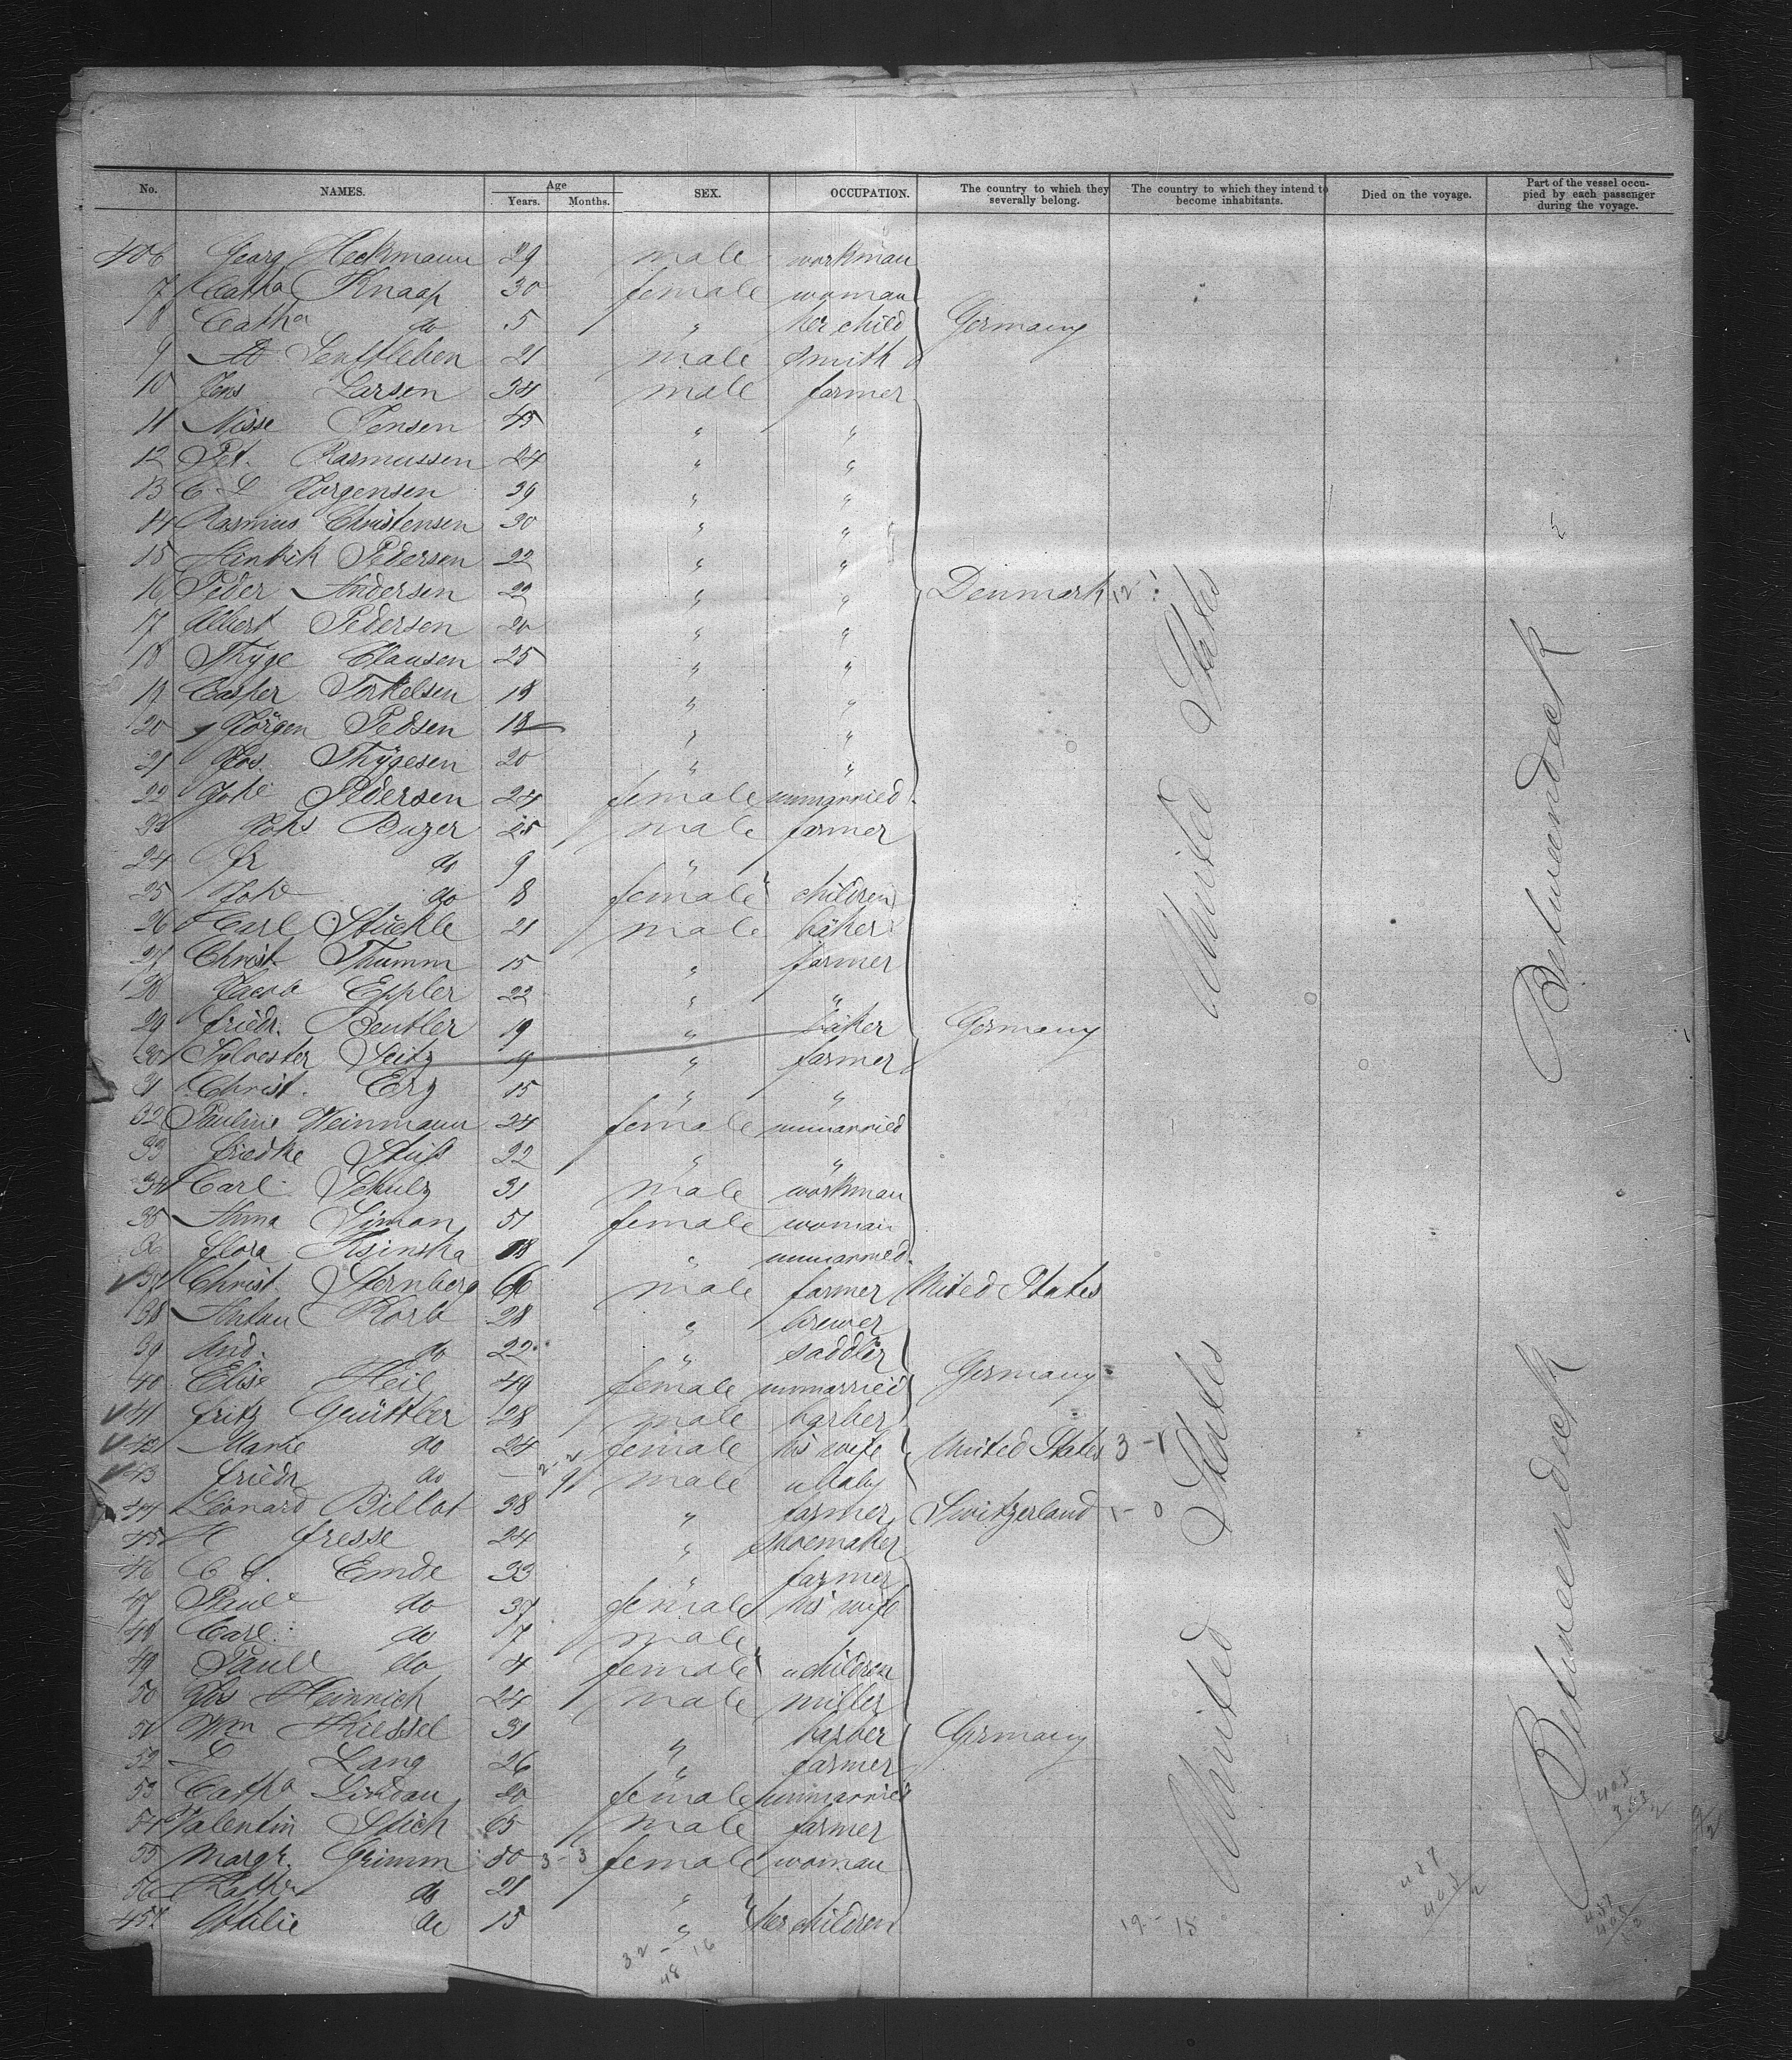 No. NAMES. Age Years. Months. SEX. OCCUPATION. The country to which they severally belong. The country to which they intend to become inhabitants. Died on the voyage. Part of the vessel occupied by each passenger during the voyage.
406 Georg Heckmann 29 male workman
7 Catha Knaap 30 female woman
8 Catha do 5 " her child Germany
9 Ad Senftleben 21 male smith
10 Jens Larsen 34 male farmer
11 Nisse Jensen 45 " "
12 Pet. Rasmussen 24 " "
13 C L Jorgensen 39 " "
14 Rasmus Christensen 30 " "
15 Hinkik Pedersen 22 " "
16 Peder Andersen 22 " " Denmark 12
17 Albert Pedersen 20 " "
18 Thyge Clausen 25 " "
19 Casper Torkelsen 18 " "
20 Jörgen Pedsen 18 " "
21 Jos. Thygesen 20 " "
22 Johe Pedersen 24 female unmarried
23 Johs Buzer 25 male farmer
24 Fr do 9 "
25 Johe do 8 female children
26 Carl Stückle 21 male baker
27 Christ Thumm 15 " farmer
28 Jacob Eppler 22 " "
29 Friedr. Beutler 19 " baker Germany
30 Sylvester Seitz 19 " farmer
31 Christ. Erz 15 " "
32 Pauline Weinmann 24 female unmarried
33 Friedke Stiß 22 " "
34 Carl Schulz 31 male workman
35 Anna Simon 51 female woman
36 Flora Ksinska 18 " unmarried
37 Christ. Sternberg 66 male farmer United States
38 Antau Korb 28 " brewer
39 And. do 22 " saddler
40 Elise Heil 49 female unmarried Germany
41 Fritz Güttler 28 male barber
42 Marie do 24 female his wife United States 3 - 1
43 Friedr do — 9 male a baby
44 Leonard Billot 38 " farmer Switzerland 1 - 0
45 H Fresse 24 " shoemaker
46 C L. Emde 33 " farmer
47 Paule do 37 female his wife
48 Carl do 7 male
49 Paule do 4 female children
50 Jos Heinrich 24 male miller
51 Wm Kiessel 31 " barber Germany
52 L Lang 26 " farmer
53 Catha Lindau 20 female unmarried
54 Valentin Stich 65 male farmer
55 Margr. Grimm 50 3 - 3 female woman
56 Kathr do 21 "
457 Ottilie do 15 " her children
United States
United States
Betweendeck
Betweendeck
32 - 16
48
19 - 18
457
405